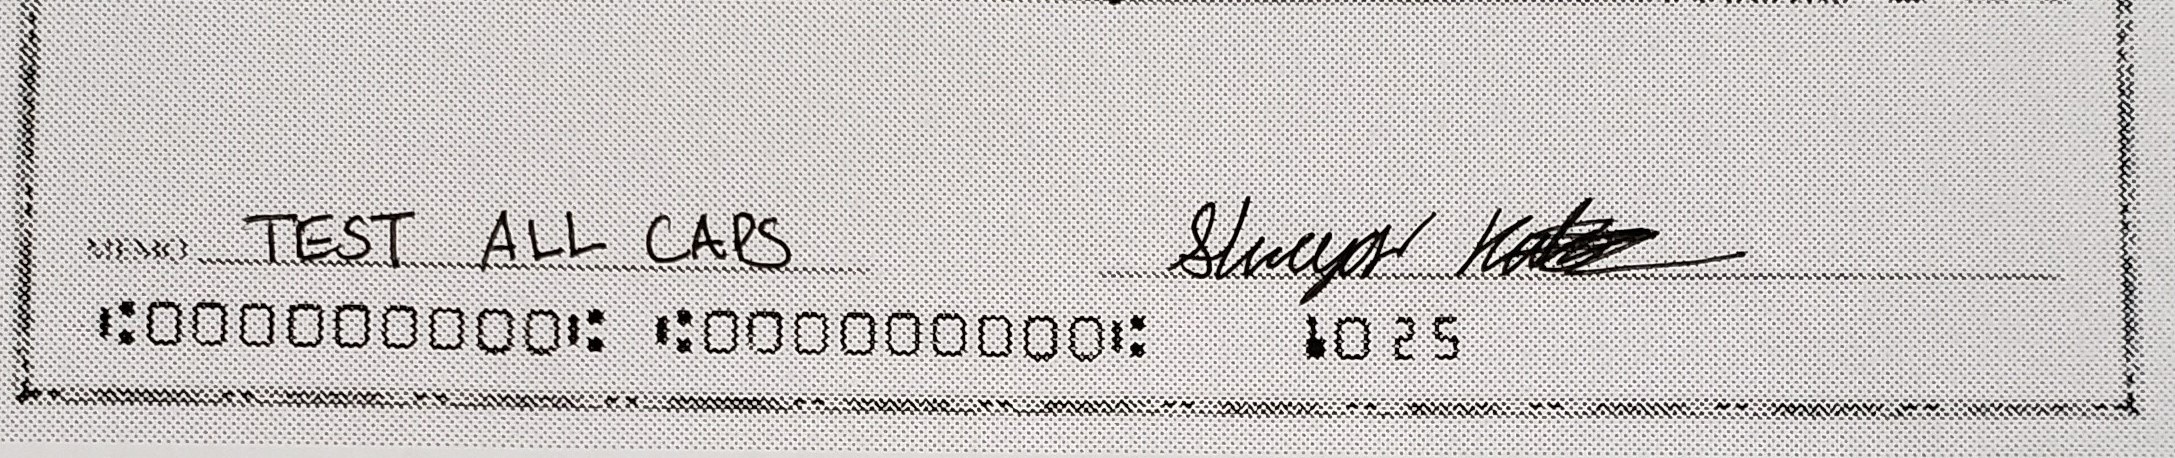 MEMO TEST ALL CAPS
⑆000000000⑆ ⑆000000000⑆ 1025